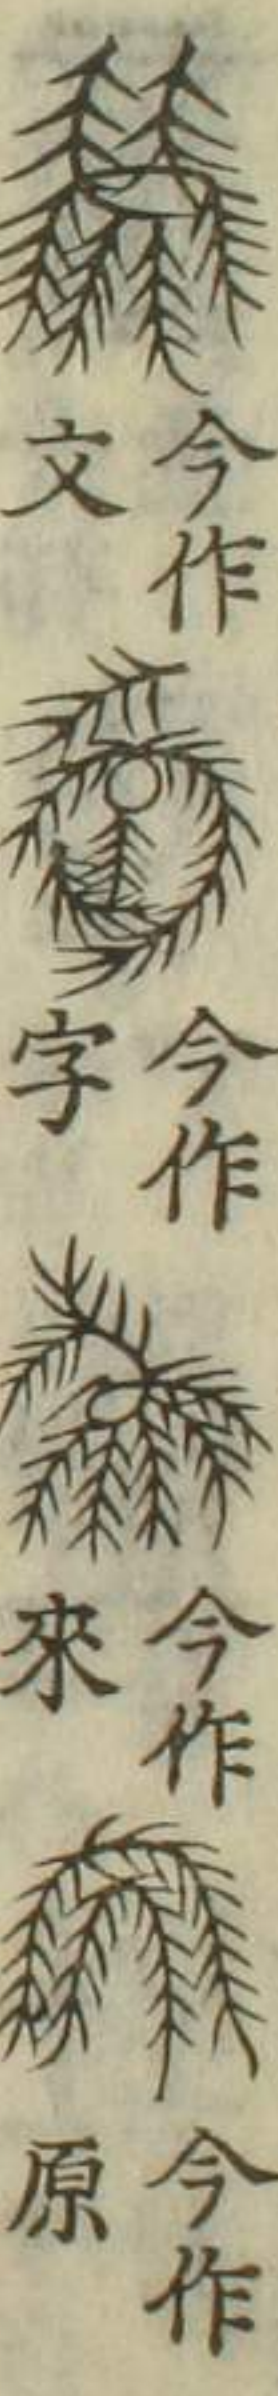 今作文
今作字
今作來
今作原